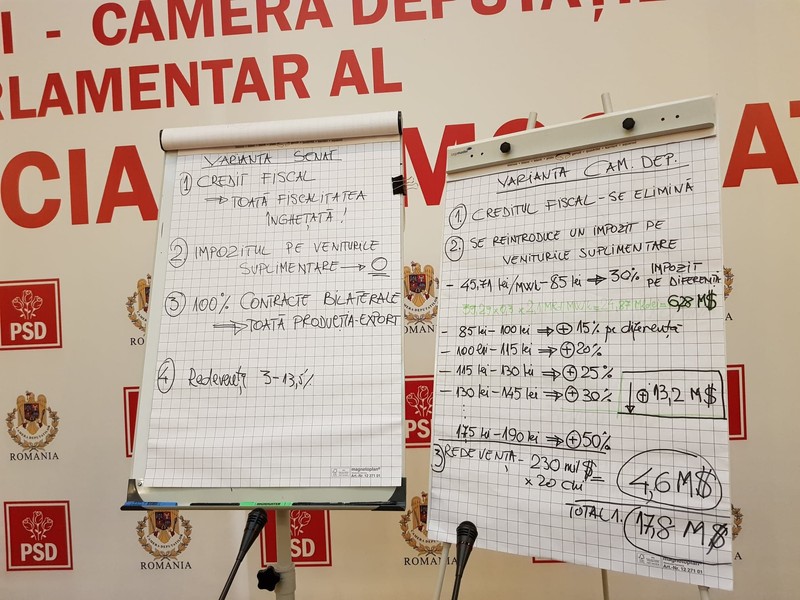 I - CAMERA DEPUTAȚI
RLAMENTAR AL
CIA
MOC
AT
VARIANTA SENAT
1 CREDIT FISCAL
⇒ TOATĂ FISCALITATEA
ÎNGHEȚATĂ !
2 IMPOZITUL PE VENITURILE
SUPLIMENTARE → O
3 100% CONTRACTE BILATERALE
⇒ TOATĂ PRODUCȚIA-EXPORT
4 Redevență 3-13,5%
magnetoplan
Art.-Nr. 12 271 51
VARIANTA CAM. DEP.
1. CREDITUL FISCAL - SE ELIMINĂ
2. SE REINTRODUCE UN IMPOZIT PE
VENITURILE SUPLIMENTARE
- 45,71 lei/MWh - 85 lei ⇒ 30% IMPOZIT
PE DIFERENȚA
6,28 M$
- 85 lei - 100 lei ⇒ ⊕ 15% pe diferență
- 100 lei - 115 lei ⇒ ⊕ 20%
- 115 lei - 130 lei ⇒ ⊕ 25%
- 130 lei - 145 lei ⇒ ⊕ 30%
↓ ⊕ 13,2 M$
175 lei - 190 lei ⇒ ⊕ 50%
3 REDEVENȚA - 230 mil $
x 20 chi
4,6 M$
TOTAL 1. 17,8 M$
magnetoplan
Art.-Nr. 12 271 51
PSD
ROMANIA
ROMANIA
PSD
PSD
PSD
ROMANIA
ROMANIA